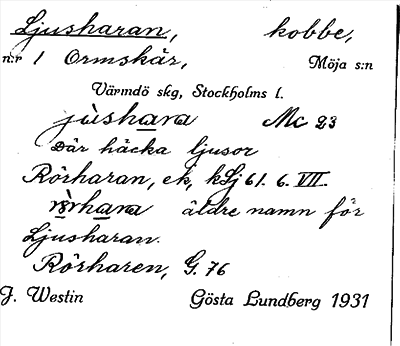 Ljusharan, kobbe,
n:r 1 Ormskär, Möja s:n
Värmdö skg, Stockholms l.
jùshara Mc 23
Där häcka ljusor
Rörharan, ek, kSj 61. 6. VII.
äldre namn för
Ljusharan.
Rörharen, G. 76
J. Westin Gösta Lundberg 1931